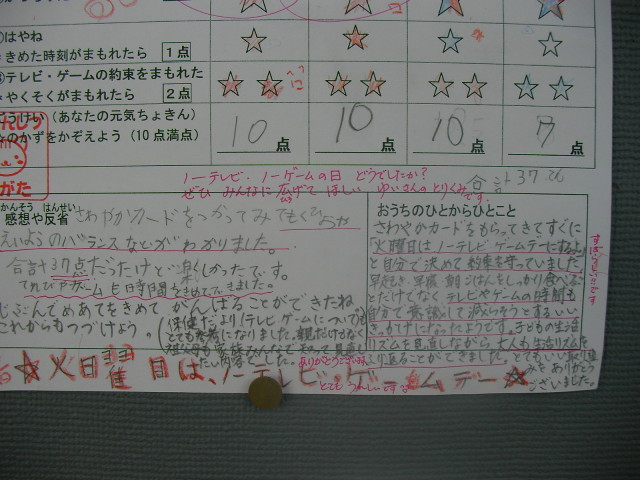 はやね
きめた時刻がまもれたら 1点
テレビ・ゲームの約束をまもれた
やくそくがまもれたら 2点
(あなたの元気ちょきん)
のかずをかぞえよう(10点満点)
10点 10点 10点 7点
合計37点
ノーテレビ・ノーゲームの日 どうでしたか?
ぜひ みんなに広げてほしい ゆいさんのとりくみです。
かんそう はんせい
感想や反省
さわやかカードをつかってみて
えいようのバランスなどがわかりました。
合計37点だったけど楽しかったです。
てれびやゲームも日時間をきめてできました。
じぶんでめあてをきめて がんばることができたね
これからもつづけよう。
保健だより!テレビゲームについても
とても参考になりました。親だけでなく
おうちのひとからひとこと
さわやかカードをもらってきてすぐに
「火曜日はノーテレビ・ゲームデーにするよ」
と自分で決めて約束を守っていました。
早起き、早寝、朝ごはんをしっかり食べる
とだけでなく テレビやゲームの時間も
自分で意識して減らそうとするいい
きっかけになったようです。子どもの生活
リズムを見直しながら 大人も生活リズムを
ふり返ることができました。とてもいい取り組
みを ありがとう
ございました。
すばらしいことです
ありがとうございます
とても うれしいです
☆火曜日は、ノーテレビ・ゲームデー☆